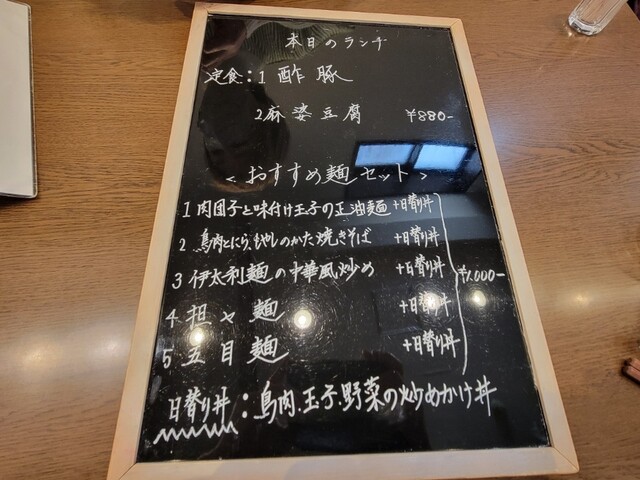 本日のランチ
定食:1 酢豚
2 麻婆豆腐 ¥880-
<おすすめ麺セット>
1 肉団子と味付け玉子の正油麺 +日替り丼
2 鳥肉とにら、もやしのかた焼きそば +日替り丼
3 伊太利麺の中華風炒め +日替り丼
¥1,000-
4 担々麺 +日替り丼
5 五目麺 +日替り丼
日替り丼:鳥肉、玉子、野菜の炒めかけ丼